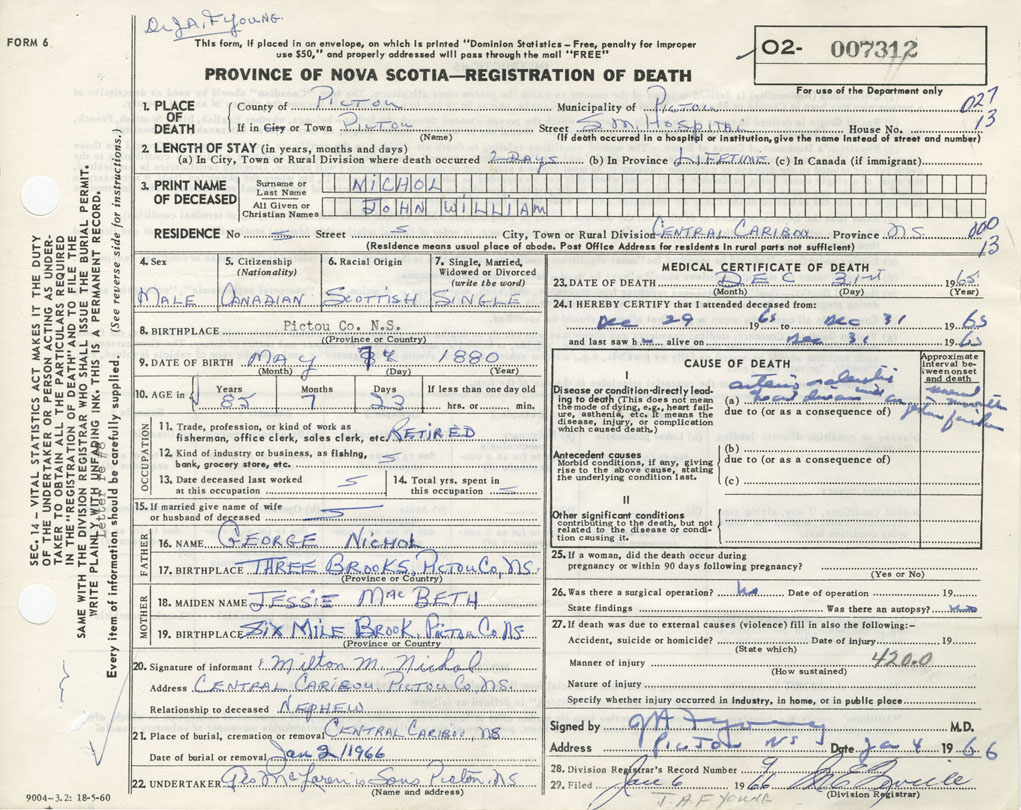 Dr. J.A. F Young.
FORM 6
This form, if placed in an envelope, on which is printed "Dominion Statistics – Free, penalty for improper
use $50," and properly addressed will pass through the mail "FREE"
O2- 007312
For use of the Department only
PROVINCE OF NOVA SCOTIA—REGISTRATION OF DEATH
1. PLACE OF DEATH County of PICTOU Municipality of PICTOU 027
If in City or Town PICTOU (Name) Street S.M. HOSPITAL House No. 13
(If death occurred in a hospital or institution, give the name instead of street and number)
2. LENGTH OF STAY (in years, months and days)
(a) In City, Town or Rural Division where death occurred 2 DAYS (b) In Province LIFETIME (c) In Canada (if immigrant)
3. PRINT NAME OF DECEASED Surname or Last Name NICHOL
All Given or Christian Names JOHN WILLIAM
RESIDENCE No Street City, Town or Rural Division CENTRAL CARIBOU Province N.S. 000
(Residence means usual place of abode. Post Office Address for residents in rural parts not sufficient) 13
4. Sex MALE
5. Citizenship (Nationality) CANADIAN
6. Racial Origin SCOTTISH
7. Single, Married, Widowed or Divorced (write the word) SINGLE
8. BIRTHPLACE Pictou Co. N.S.
(Province or Country)
9. DATE OF BIRTH MAY 4 1880
(Month) (Day) (Year)
10. AGE in Years 85 Months 7 Days 23 If less than one day old hrs. or min.
OCCUPATION
11. Trade, profession, or kind of work as fisherman, office clerk, sales clerk, etc. RETIRED
12. Kind of industry or business, as fishing, bank, grocery store, etc.
13. Date deceased last worked at this occupation
14. Total yrs. spent in this occupation
15. If married give name of wife or husband of deceased
FATHER
16. NAME GEORGE NICHOL
17. BIRTHPLACE THREE BROOKS, PICTOU CO, NS.
(Province or Country)
MOTHER
18. MAIDEN NAME JESSIE MACBETH
19. BIRTHPLACE SIX MILE BROOK, PICTOU CO NS
(Province or Country)
20. Signature of informant Milton M. Nichol
Address CENTRAL CARIBOU, PICTOU CO, NS.
Relationship to deceased NEPHEW
21. Place of burial, cremation or removal CENTRAL CARIBOU, NS
Date of burial or removal Jan 2/1966
22. UNDERTAKER Geo McLaren & Sons Pictou, NS
(Name and address)
MEDICAL CERTIFICATE OF DEATH
23. DATE OF DEATH DEC 31st 1965
(Month) (Day) (Year)
24. I HEREBY CERTIFY that I attended deceased from:
Dec 29 1965 to Dec 31 1965
and last saw h alive on Dec 31 1965
CAUSE OF DEATH
Approximate interval between onset and death
I
Disease or condition directly leading to death (This does not mean the mode of dying, e.g., heart failure, asthenia, etc. It means the disease, injury, or complication which caused death.)
(a) heart disease
due to (or as a consequence of)
Antecedent causes
Morbid conditions, if any, giving rise to the above cause, stating the underlying condition last.
(b)
due to (or as a consequence of)
(c)
II
Other significant conditions contributing to the death, but not related to the disease or condition causing it.
25. If a woman, did the death occur during pregnancy or within 90 days following pregnancy?
(Yes or No)
26. Was there a surgical operation? No Date of operation 19
State findings Was there an autopsy? No
27. If death was due to external causes (violence) fill in also the following:–
Accident, suicide or homicide? Date of injury 19
(State which)
Manner of injury 420.0
(How sustained)
Nature of injury
Specify whether injury occurred in industry, in home, or in public place
Signed by JAF Young M.D.
Address PICTOU NS Date Jan 4 1966
28. Division Registrar's Record Number 9
29. Filed Jan 6 1966
(Division Registrar)
J. A F YOUNG
SEC. 14 – VITAL STATISTICS ACT MAKES IT THE DUTY
OF THE UNDERTAKER OR PERSON ACTING AS UNDER-
TAKER TO OBTAIN ALL THE PARTICULARS REQUIRED
IN THE "REGISTRATION OF DEATH" AND TO FILE THE
SAME WITH THE DIVISION REGISTRAR WHO SHALL ISSUE THE BURIAL PERMIT.
WRITE PLAINLY WITH UNFADING INK – THIS IS A PERMANENT RECORD.
Letter re #8
Every item of information should be carefully supplied. (See reverse side for instructions.)
9004–3.2: 18-5-60